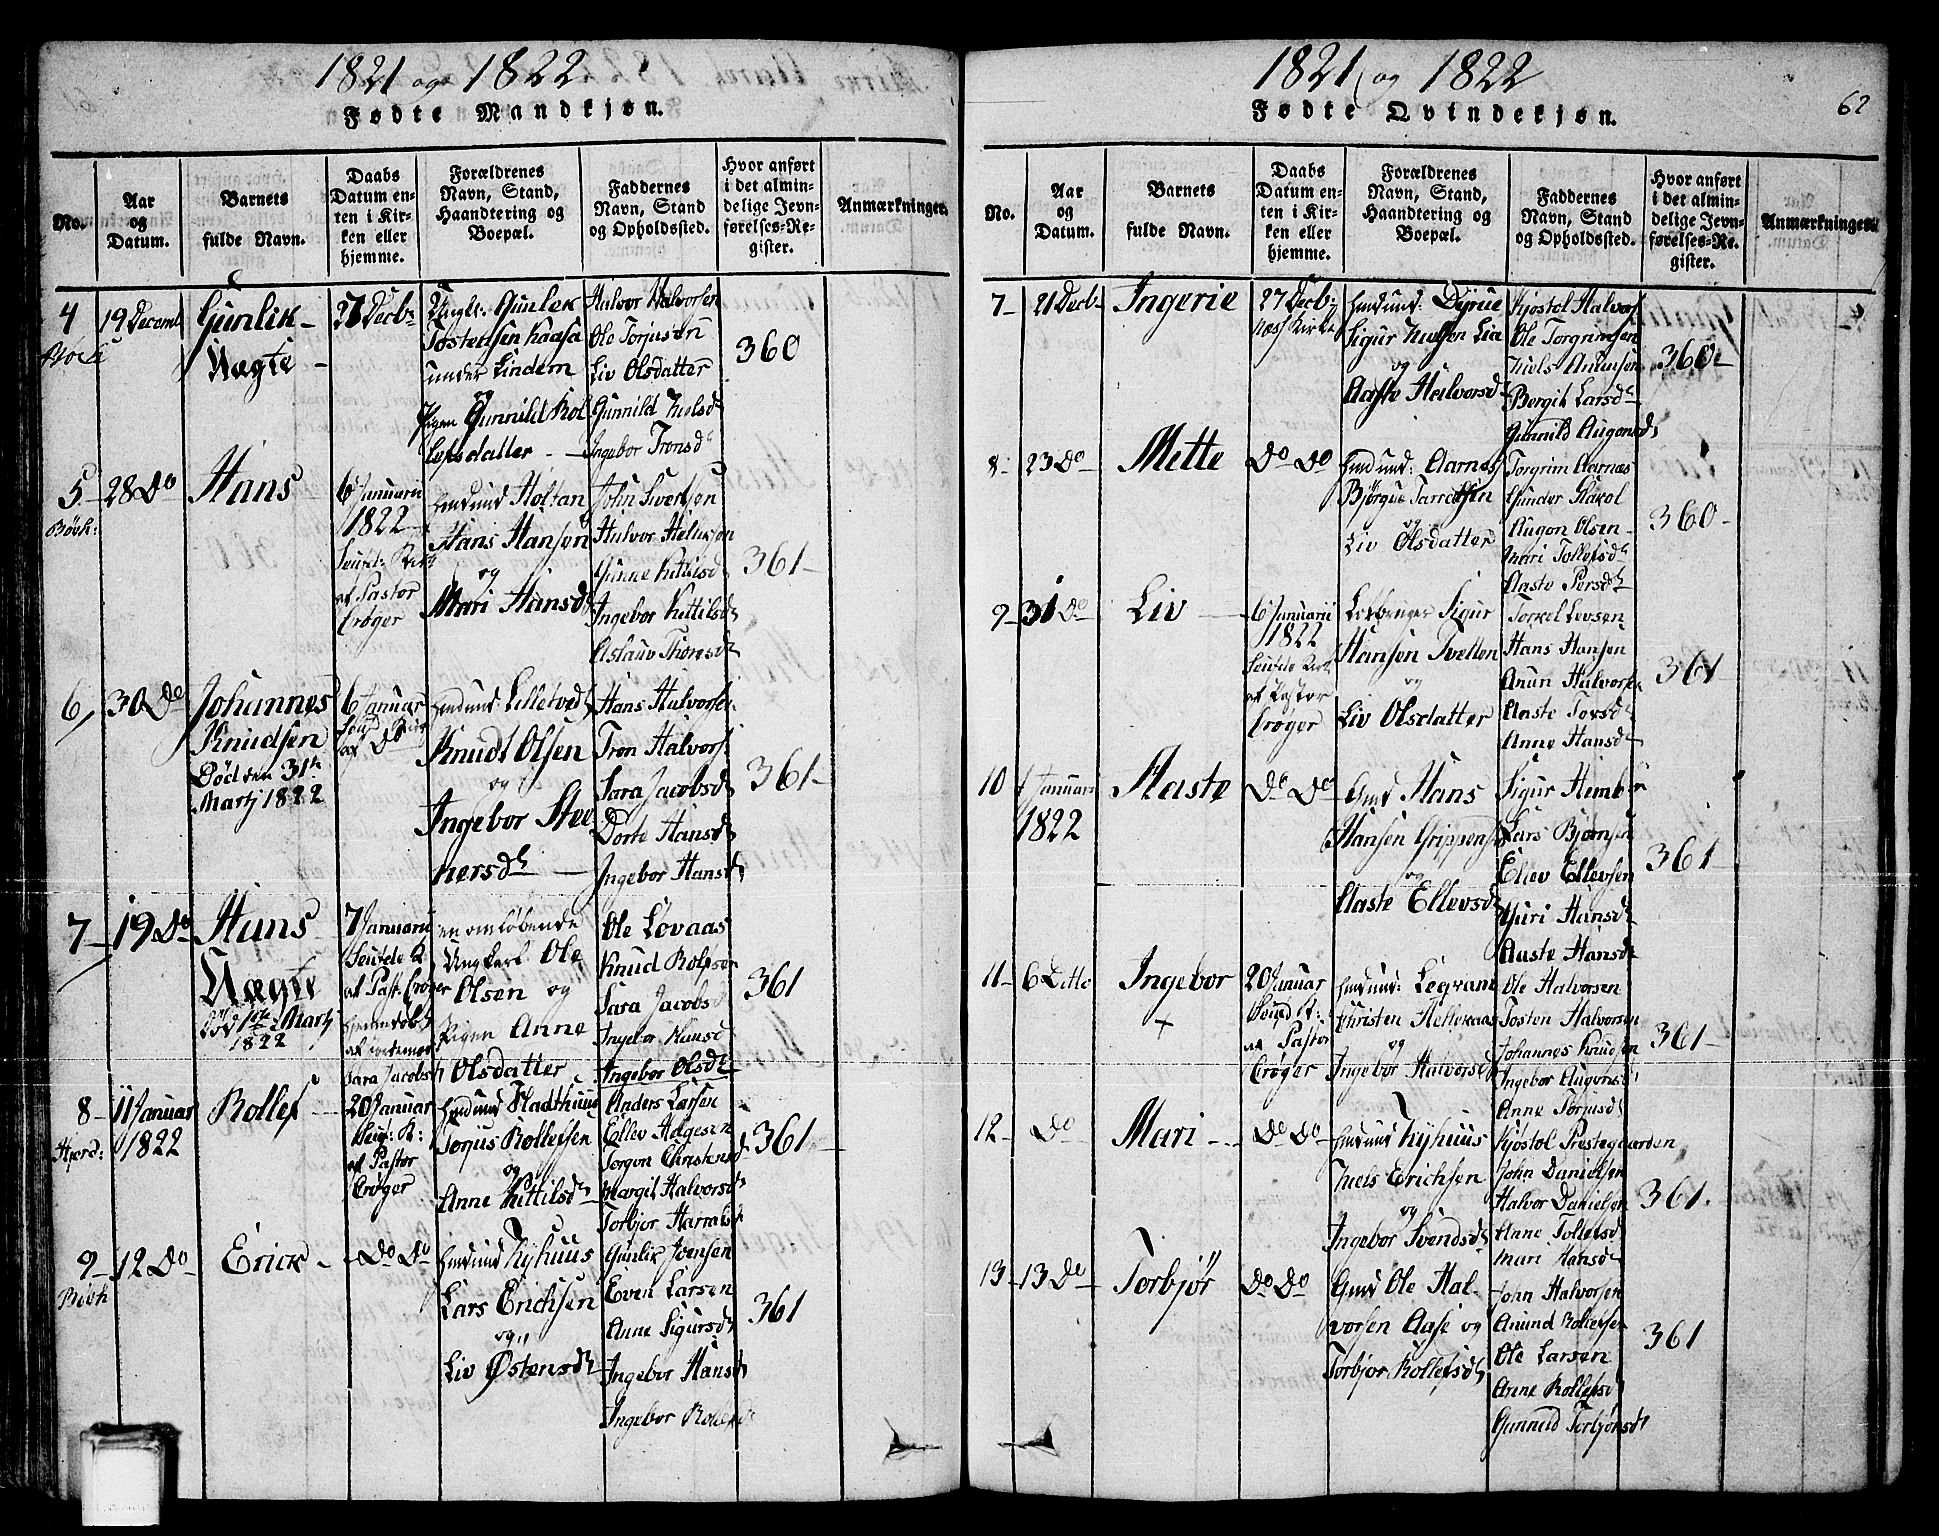 1821 og 1822
Fødte Mandkjøn.
No.
Aar og Datum.
Barnets fulde Navn.
Daabs Datum enten i Kirken eller hjemme.
Forældrenes Navn, Stand, Haandtering og Boepæl.
Faddernes Navn, Stand og Opholdssted.
Hvor anført i det almindelige Jevnførelses-Register.
Anmærkninger.
4
19 Decemb
Gunlik
Uægte
27 Decbr
Gunlek
Tostensen Kaasa
under Lindem
og
Pigen Gunnild Rol
lefsdatter
Halvor Halvorsen
Ole Torjusen
Liv Olsdatter
Gunnild Nielsd
Ingebor Tronsd
360
5
28 Do
Bövh:
Hans
6 Januarii
1822
af Pastor
Crøger
Holtan
Hans Hansen
og
Mari Hansd
John Sivertsen
Gunne Kittilsd
Ingebor Kittilsd
Aslauv Thoresd
361
6
30 Do
Johannes
Knudsen
Död den 31te
Martj 1822
6 Januar
af Do
Lilletvedt
Knudt Olsen
og
Ingebor Stee
nersd
Hans Halvorsen
Tron Halvors
Sara Jacobsd
Dorte Hansd
Ingebor Hansd
361
7
19 Do
Hans
Uægte
1822
7 Januarii
af Past. Crøger
Sara Jacobsd
en omløbende
Ungkarl Ole
Olsen og
Pigen Anne
Olsdatter
Ole Lovaas
Knud Rolfsen
Sara Jacobsd
Ingebor Hansd
Ingebor Olsd
361
8
11 Januar
1822
Rollef
20 Januar
af Pastor
Crøger
Stadthuus
Torjus Rollefsen
og
Anne Kittilsd
Anders Larsen
Ellev Halgesen
Torgon Christensd
Margit Halvorsd
Torbjor Harralsd
361
9
12 Do
Bövh
Erick
Do Do
Nyhuus
Lars Erichsen
og
Liv Østensd
Gunlik Joensen
Even Larsen
Anne Sigursd
Ingebor Hansd
Ingebor Rollefsd
361
1821 og 1822
62
Fødte Qvindekjøn.
No.
Aar og Datum.
Barnets fulde Navn.
Daabs Datum enten i Kirken eller hjemme.
Forældrenes Navn, Stand, Haandtering og Boepæl.
Faddernes Navn, Stand og Opholdssted.
Hvor anført i det almindelige Jevnførelses-Register.
Anmærkninger.
7
21 Decb
Ingerie
27 Decb
Næs Kirke
Sigur Nielsen Lia
og
Aaste Halvorsd
Kjöstol Halvors
Ole Torgrimsen
Niels Andersen
Bergit Larsd
Gunnild Augonsd
360
8
23 Do
Mette
Do Do
Aarnes
og
Liv Olsdatter
Torgrim Aarnæs
Augon Olsen
Mari Tollefsd
Aaste Persd
360
9
31 Do
Liv
6 Januarii
1822
af Pastor
Crøger
Sigur
Hansen Tvetten
og
Liv Olsdatter
Torkel Levsen
Hans Hansen
Anun Halvorsen
Aaste Torsd
Anne Hansd
361
10
1 Januari
1822
Aaste
Do Do
Gmd Hans
Hansen Grippens
og
Aaste Ellevsd
Sigur Himb
Lars Bjørnsen
Ellev Ellevsen
Guri Hansd
Aaste Hansd
361
11
6 Ditto
Ingebor
+
20 Januar
af Pastor
Crøger
Christen Hellekaas
og
Ingebor Halvorsd
Ole Halvorsen
Tosten Halvorsen
Johannes Knudsen
Ingebor Augonsd
Anne Torjusd
361
12
Do
Mari
Do Do
Nyhuus
Niels Erichsen
og
Ingebor Svendsd
Kjöstol Prestegaarden
John Danielsen
Halvor Danielsen
Anne Tollefsd
Mari Hansd
361
13
13 Do
Torbjør
Do Do
Gmd Ole Hal-
vorsen Aase og
Torbjor Rollefsd
John Halvorsen
Amund Rollefsen
Ole Larsen
Anne Rollefsd
Gunnild Torbjörnsd
361